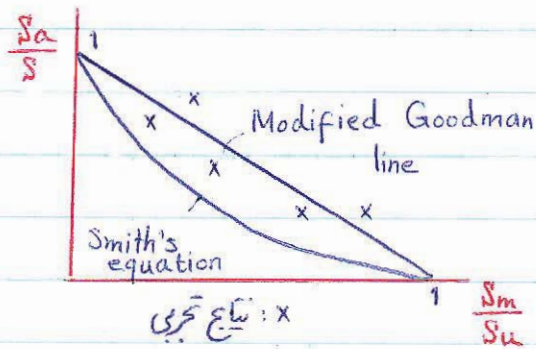 Sa/S
1
Modified Goodman
line
Smith's
equation
1
Sm/Su
x : نتایج تجربی